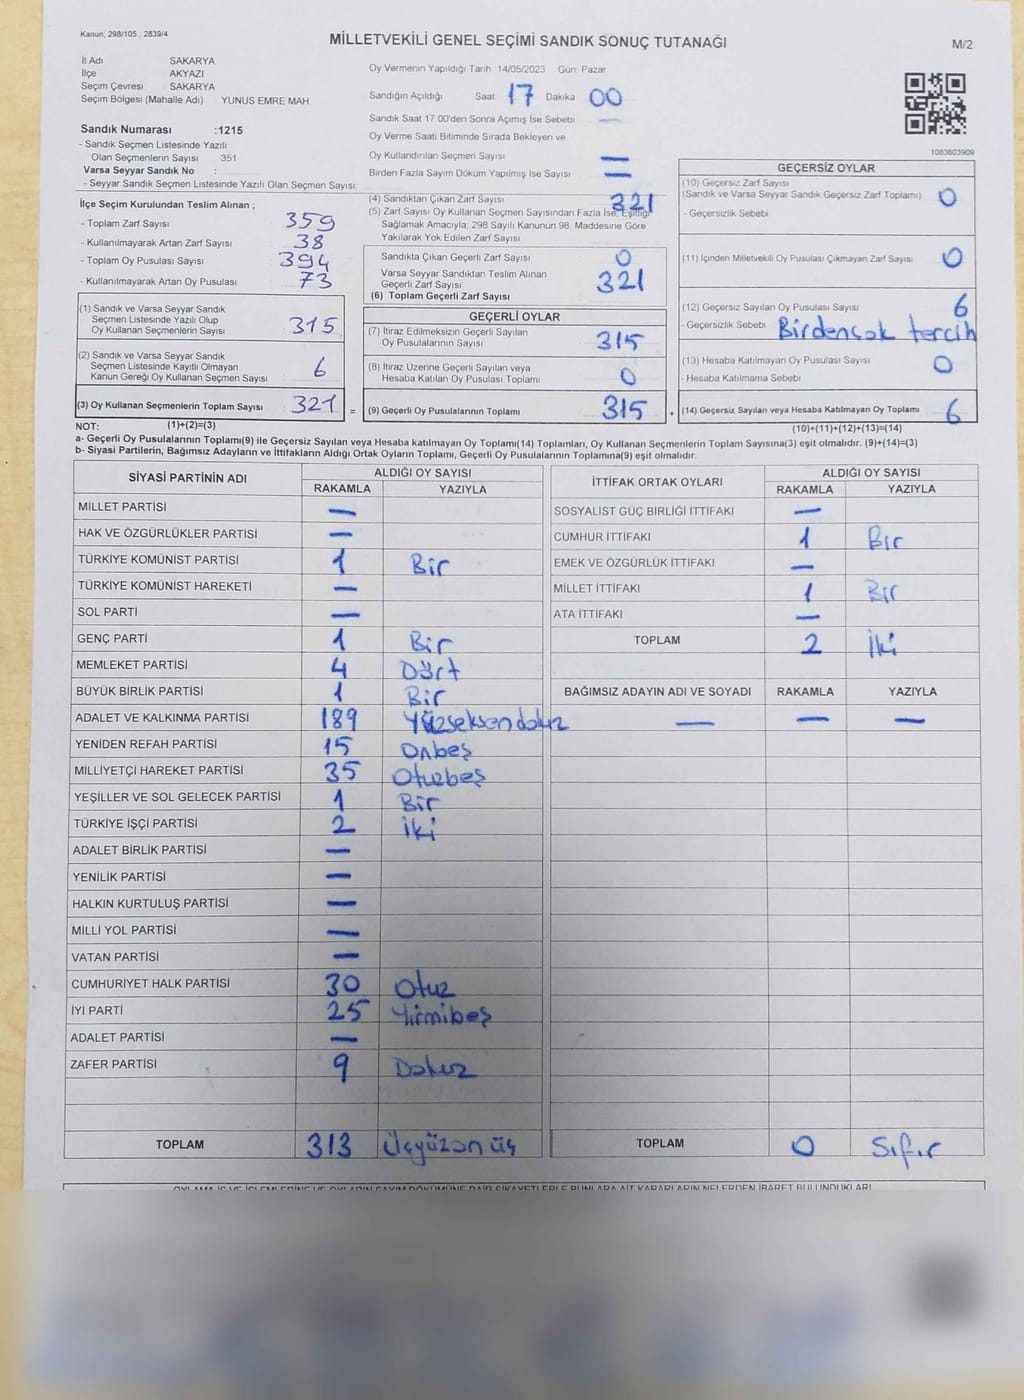 Kanun; 298/105 , 2839/4
MİLLETVEKİLİ GENEL SEÇİMİ SANDIK SONUÇ TUTANAĞI
M/2
İl Adı SAKARYA
İlçe AKYAZI
Seçim Çevresi SAKARYA
Seçim Bölgesi (Mahalle Adı) YUNUS EMRE MAH.
Sandık Numarası :1215
- Sandık Seçmen Listesinde Yazılı
Olan Seçmenlerin Sayısı 351
Varsa Seyyar Sandık No :
- Seyyar Sandık Seçmen Listesinde Yazılı Olan Seçmen Sayısı
İlçe Seçim Kurulundan Teslim Alınan ;
- Toplam Zarf Sayısı 359
- Kullanılmayarak Artan Zarf Sayısı 38
- Toplam Oy Pusulası Sayısı 394
- Kullanılmayarak Artan Oy Pusulası 73
(1) Sandık ve Varsa Seyyar Sandık
Seçmen Listesinde Yazılı Olup
Oy Kullanan Seçmenlerin Sayısı 315
(2) Sandık ve Varsa Seyyar Sandık
Seçmen Listesinde Kayıtlı Olmayan
Kanun Gereği Oy Kullanan Seçmen Sayısı 6
(3) Oy Kullanan Seçmenlerin Toplam Sayısı 321 =
Oy Vermenin Yapıldığı Tarih 14/05/2023 Gün: Pazar
Sandığın Açıldığı Saat 17 Dakika 00
Sandık Saat 17:00'den Sonra Açımış İse Sebebi —
Oy Verme Saati Bitiminde Sırada Bekleyen ve
Oy Kullandırılan Seçmen Sayısı —
Birden Fazla Sayım Döküm Yapılmış İse Sayısı —
(4) Sandıktan Çıkan Zarf Sayısı 321
(5) Zarf Sayısı Oy Kullanan Seçmen Sayısından Fazla İse, Eşitliği
Sağlamak Amacıyla, 298 Sayılı Kanunun 98. Maddesine Göre
Yakılarak Yok Edilen Zarf Sayısı
Sandıkta Çıkan Geçerli Zarf Sayısı 0
Varsa Seyyar Sandıktan Teslim Alınan
Geçerli Zarf Sayısı 321
(6) Toplam Geçerli Zarf Sayısı
GEÇERLİ OYLAR
(7) İtiraz Edilmeksizin Geçerli Sayılan
Oy Pusulalarının Sayısı 315
(8) İtiraz Üzerine Geçerli Sayılan veya
Hesaba Katılan Oy Pusulası Toplamı 0
(9) Geçerli Oy Pusulalarının Toplamı 315 +
1083603909
GEÇERSİZ OYLAR
(10) Geçersiz Zarf Sayısı
(Sandık ve Varsa Seyyar Sandık Geçersiz Zarf Toplamı) 0
- Geçersizlik Sebebi
(11) İçinden Milletvekili Oy Pusulası Çıkmayan Zarf Sayısı 0
(12) Geçersiz Sayılan Oy Pusulası Sayısı 6
- Geçersizlik Sebebi Birdençok tercih
(13) Hesaba Katılmayan Oy Pusulası Sayısı 0
- Hesaba Katılmama Sebebi
(14) Geçersiz Sayılan veya Hesaba Katılmayan Oy Toplamı 6
NOT: (1)+(2)=(3) (10)+(11)+(12)+(13)=(14)
a- Geçerli Oy Pusulalarının Toplamı(9) ile Geçersiz Sayılan veya Hesaba katılmayan Oy Toplamı(14) Toplamları, Oy Kullanan Seçmenlerin Toplam Sayısına(3) eşit olmalıdır. (9)+(14)=(3)
b- Siyasi Partilerin, Bağımsız Adayların ve İttifakların Aldığı Ortak Oyların Toplamı, Geçerli Oy Pusulalarının Toplamına(9) eşit olmalıdır.
SİYASİ PARTİNİN ADI ALDIĞI OY SAYISI
RAKAMLA YAZIYLA
MİLLET PARTİSİ —
HAK VE ÖZGÜRLÜKLER PARTİSİ —
TÜRKİYE KOMÜNİST PARTİSİ 1 Bir
TÜRKİYE KOMÜNİST HAREKETİ —
SOL PARTİ —
GENÇ PARTİ 1 Bir
MEMLEKET PARTİSİ 4 Dört
BÜYÜK BİRLİK PARTİSİ 1 Bir
ADALET VE KALKINMA PARTİSİ 189 Yüzseksendokuz
YENİDEN REFAH PARTİSİ 15 Onbeş
MİLLİYETÇİ HAREKET PARTİSİ 35 Otuzbeş
YEŞİLLER VE SOL GELECEK PARTİSİ 1 Bir
TÜRKİYE İŞÇİ PARTİSİ 2 İki
ADALET BİRLİK PARTİSİ —
YENİLİK PARTİSİ —
HALKIN KURTULUŞ PARTİSİ —
MİLLİ YOL PARTİSİ —
VATAN PARTİSİ —
CUMHURİYET HALK PARTİSİ 30 Otuz
İYİ PARTİ 25 Yirmibeş
ADALET PARTİSİ —
ZAFER PARTİSİ 9 Dokuz
TOPLAM 313 Üçyüzonüç
İTTİFAK ORTAK OYLARI ALDIĞI OY SAYISI
RAKAMLA YAZIYLA
SOSYALİST GÜÇ BİRLİĞİ İTTİFAKI —
CUMHUR İTTİFAKI 1 Bir
EMEK VE ÖZGÜRLÜK İTTİFAKI —
MİLLET İTTİFAKI 1 Bir
ATA İTTİFAKI —
TOPLAM 2 İki
BAĞIMSIZ ADAYIN ADI VE SOYADI RAKAMLA YAZIYLA
— — —
TOPLAM 0 Sıfır
OYLAMA İŞ VE İŞLEMLERİNE VE OYLARIN SAYIM DÖKÜMÜNE DAİR ŞİKAYETLERLE BUNLARA AİT KARARLARIN NELERDEN İBARET BULUNDUKLARI